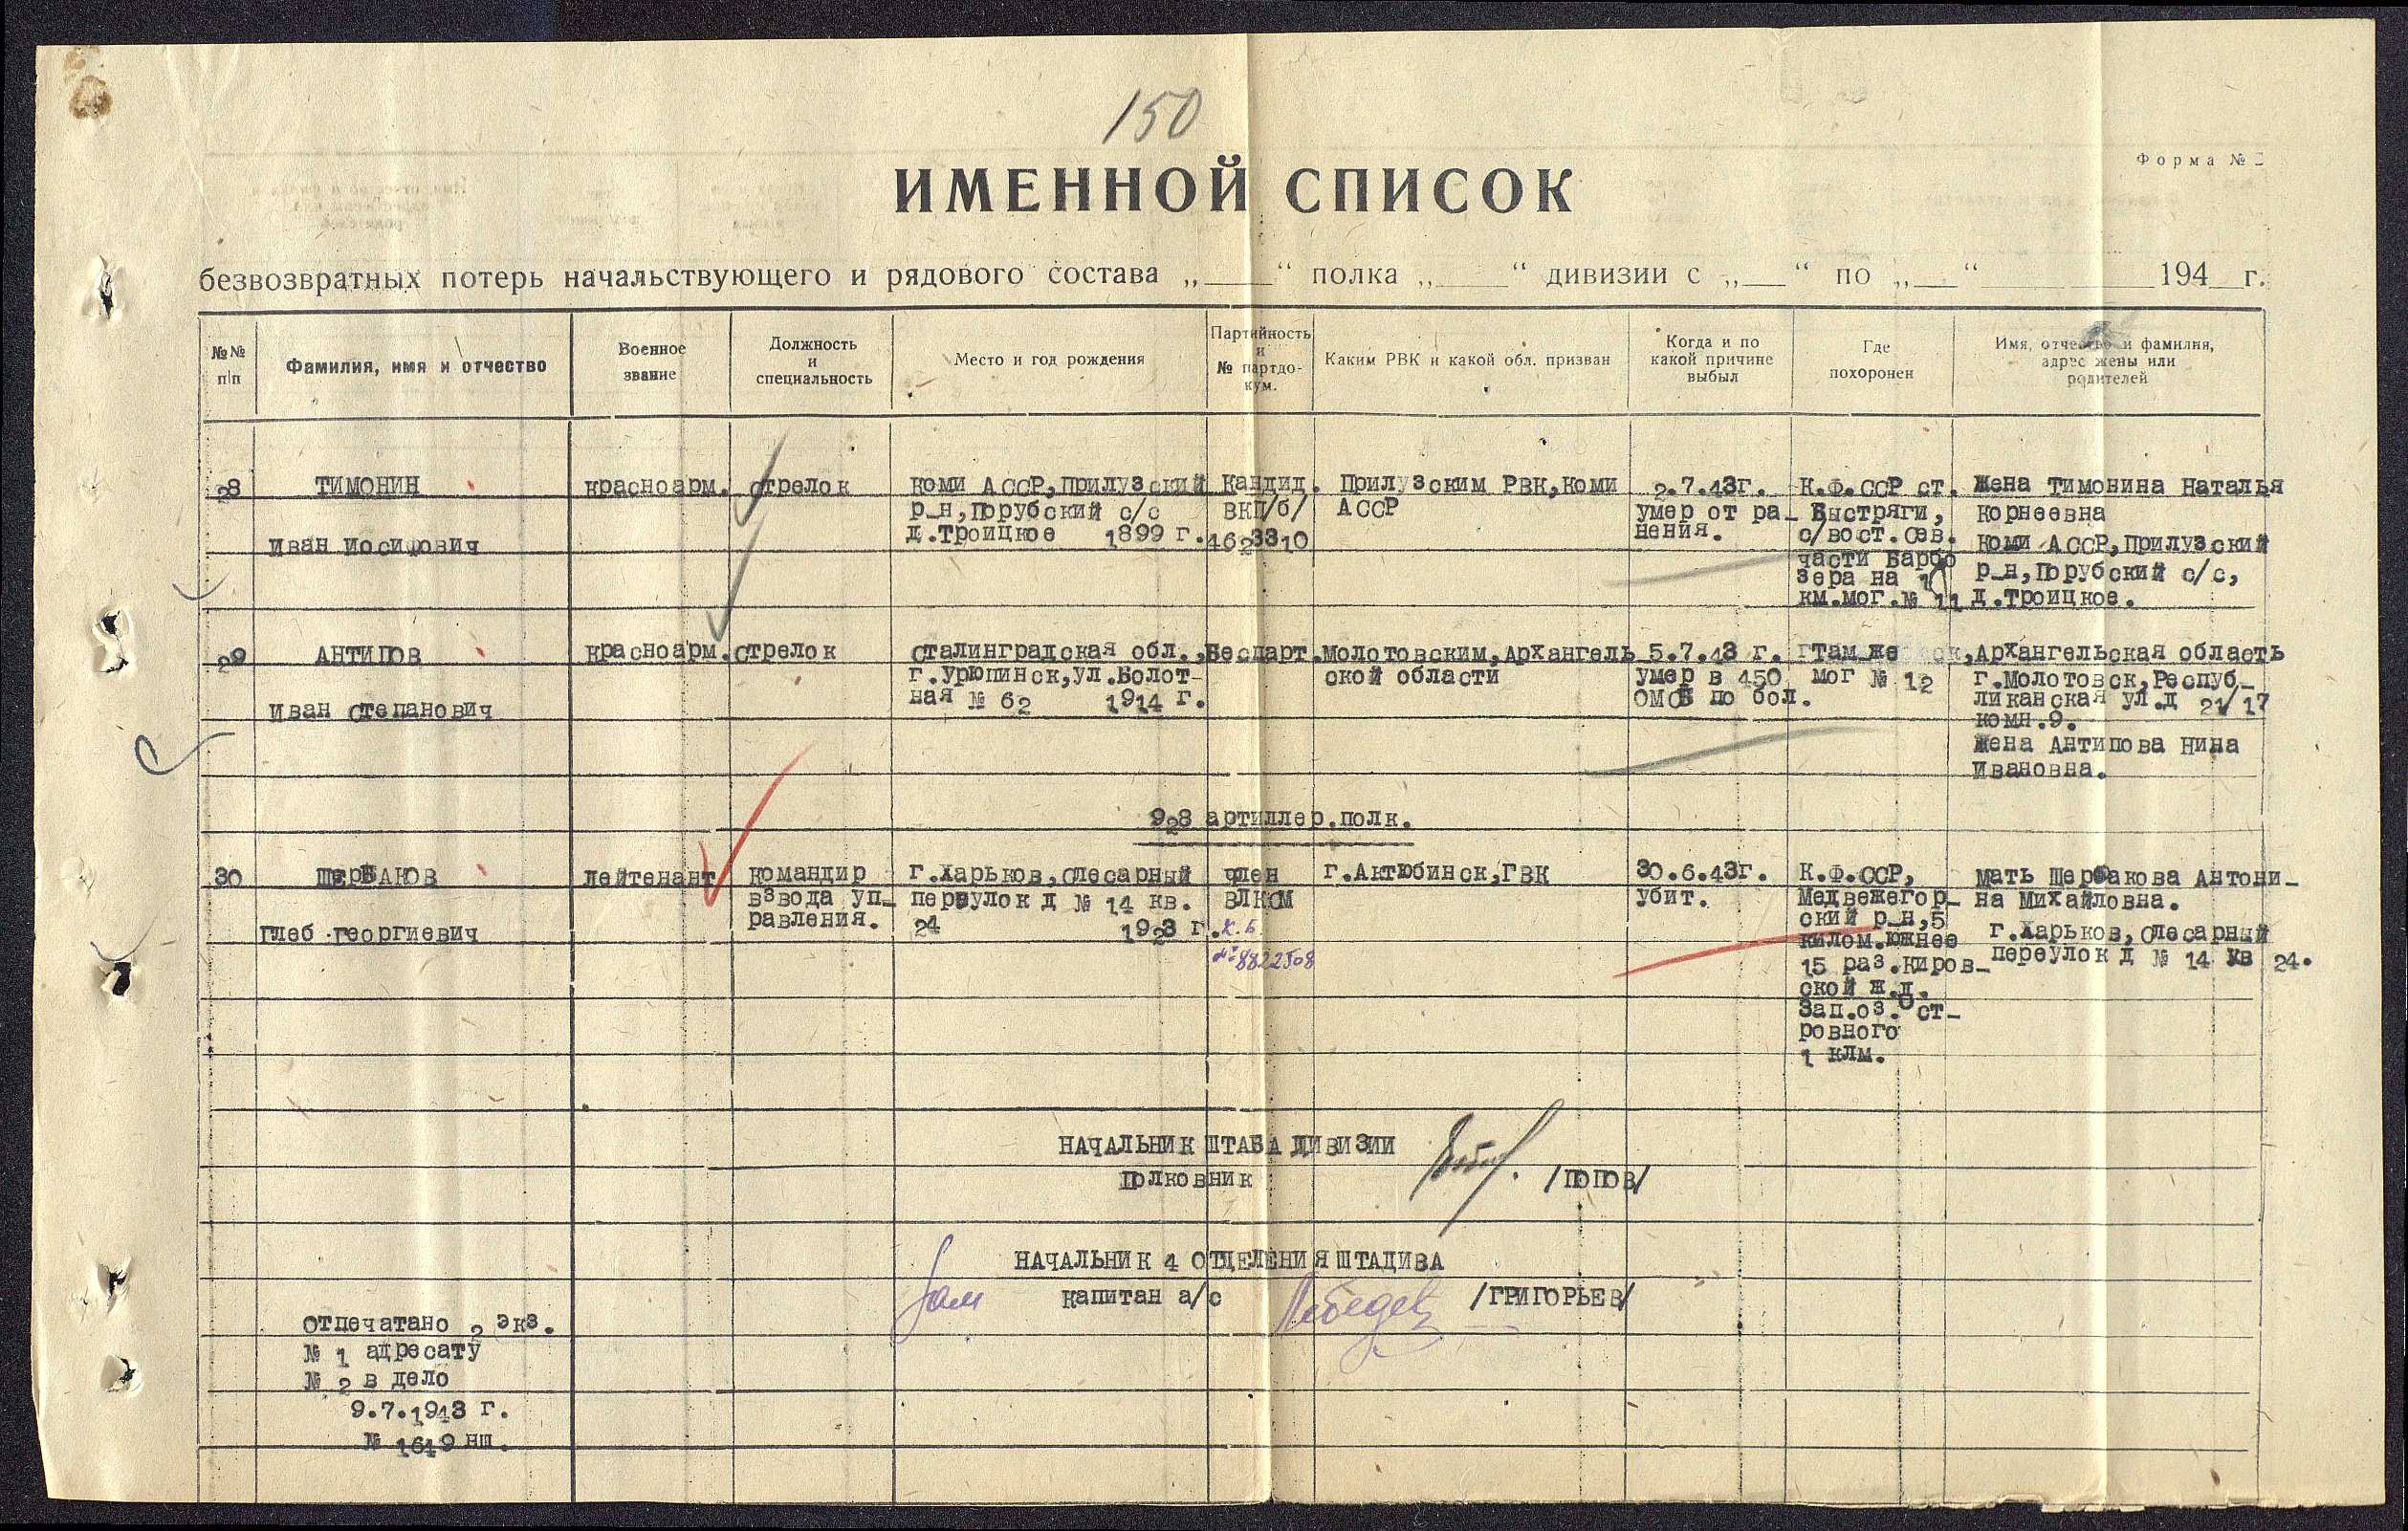 150
Форма №
ИМЕННОЙ СПИСОК
безвозвратных потерь начальствующего и рядового состава „____“ полка „____“ дивизии с „___“ по „___“ ________ 194__г.
№№ п/п
Фамилия, имя и отчество
Военное звание
Должность и специальность
Место и год рождения
Партийность и № партдо-кум.
Каким РВК и какой обл. призван
Когда и по какой причине выбыл
Где похоронен
Имя, отчество и фамилия, адрес жены или родителей
28
ТИМОНИН
Иван Иосифович
красноарм.
стрелок
Коми АССР,Прилузский
р-н,Порубский с/с
д.Троицкое 1899 г.
Кандид.
ВКП/б/
4623310
Прилузским РВК,Коми
АССР
2.7.43г.
умер от ра-
нения.
К.Ф.ССР ст.
Быстряги,
с/вост.сев.
части Варбо
зера на 1
км.мог.№ 11
Жена Тимонина Наталья
Корнеевна
Коми АССР,Прилузский
р-н,Порубский с/с,
д.Троицкое.
29
АНТИПОВ
Иван Степанович
красноарм.
стрелок
Сталинградская обл.,
г.Урюпинск,ул.Болот-
ная № 62 1914 г.
Беспарт.
Молотовским,Архангель-
ской области
5.7.43 г.
умер в 450
ОМСБ по бол.
Там же
мог № 12
Архангельская область
г.Молотовск,Респуб-
ликанская ул.д 21/17
комн.9.
Жена Антипова Нина
Ивановна.
928 артиллер.полк.
30
ЩЕРБАКОВ
Глеб Георгиевич
лейтенант
командир
взвода уп-
равления.
г.Харьков,Слесарный
переулок д № 14 кв.
24 1923 г.
член
ВЛКСМ
к.б.
№ 8822508
г.Актюбинск,ГВК
30.6.43г.
убит.
К.Ф.ССР,
Медвежегор-
ский р-н,5
килом.южнее
15 раз.Киров-
ской ж.д.
Зап.оз.Ост-
ровного
1 клм.
мать Щербакова Антони-
на Михайловна.
г.Харьков,Слесарный
переулок д № 14 кв 24.
НАЧАЛЬНИК ШТАБА ДИВИЗИИ
Полковник /ПОПОВ/
НАЧАЛЬНИК 4 ОТДЕЛЕНИЯ ШТАДИВА
Зам капитан а/с Лебедев /ГРИГОРЬЕВ/
Отпечатано 2 экз.
№ 1 адресату
№ 2 в дело
9.7.1943 г.
№ 1649 нш.